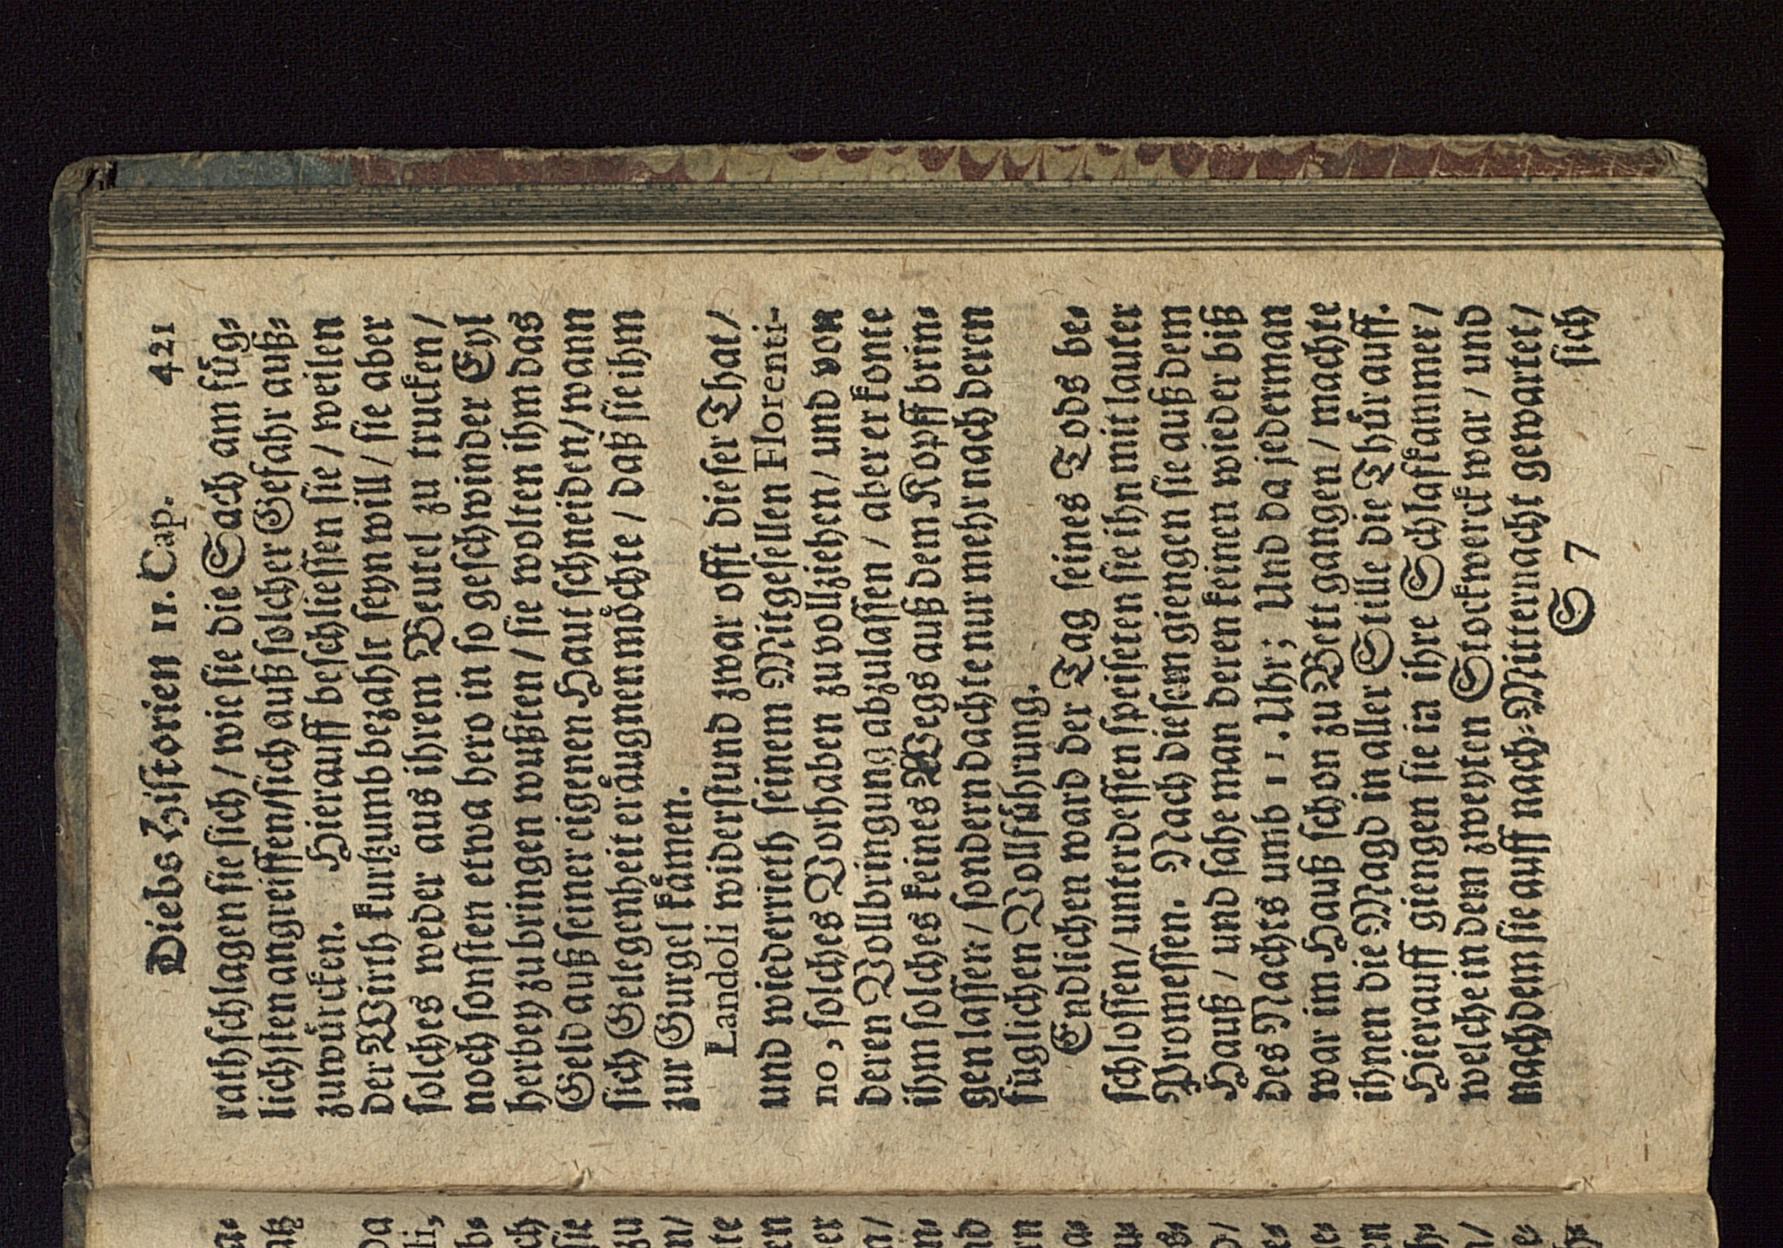 Diebs Historien II. Cap. 421
rathschlagen sie sich / wie sie die Sach am füg-
lichsten angreiffen/sich auß solcher Gefahr auß-
zuwürcken. Hierauff beschliessen sie / weilen
der Wirth kurtzumb bezahlt seyn will / sie aber
solches weder aus ihrem Beutel zu trucken /
noch sonsten etwa hero in so geschwinder Eyl
herbey zu bringen wußten / sie wolten ihm das
Geld auß seiner eigenen Haut schneiden/ wann
sich Gelegenheit eräugnen möchte / daß sie ihm
zur Gurgel kämen.
Landoli widerstund zwar offt dieser That /
und wiederrieth seinem Mitgesellen Florenti-
no, solches Vorhaben zu vollziehen/ und von
deren Vollbringung abzulassen / aber er konte
ihm solches keines Wegs auß dem Kopff brin-
gen lassen / sondern dachte nur mehr nach deren
füglichen Vollführung.
Endlichen ward der Tag seines Tods be-
schlossen/ unterdessen speiseten sie ihn mit lauter
Promessen. Nach diesem giengen sie auß dem
Hauß / und sahe man deren keinen wieder biß
des Nachts umb 11. Uhr; Und da jederman
war im Hauß schon zu Bett gangen / machte
ihnen die Magd in aller Stille die Thür auff.
Hierauff giengen sie in ihre Schlafkammer /
welche in dem zweyten Stockwerck war / und
nachdem sie auff nach-Mitternacht gewartet /
S 7 sich